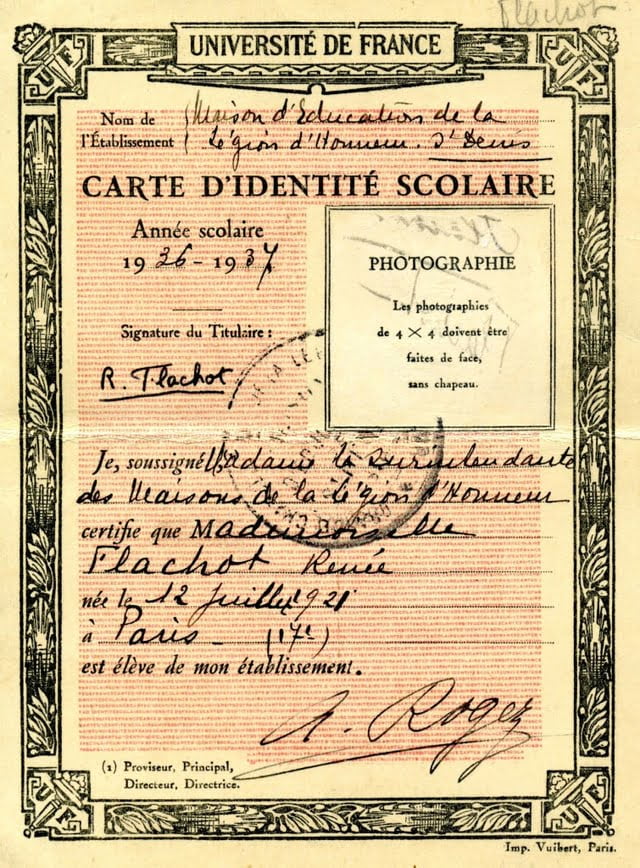 Flachot
UNIVERSITÉ DE FRANCE
UF
UF
Nom de l'Établissement
Maison d'Education de la
Légion d'Honneur. St Denis
CARTE D'IDENTITÉ SCOLAIRE
Année scolaire
1936-1937
Signature du Titulaire :
R. Flachot
PHOTOGRAPHIE
Les photographies
de 4 X 4 doivent être
faites de face,
sans chapeau.
Je, soussigné Madame la Surintendante
des Maisons de la Légion d'Honneur
certifie que Mademoiselle
Flachot Renée
née le 12 Juillet 1921
à Paris - (17e)
est élève de mon établissement.
A. Rogez
(1) Proviseur, Principal,
Directeur, Directrice.
UF
UF
Imp. Vuibert, Paris.